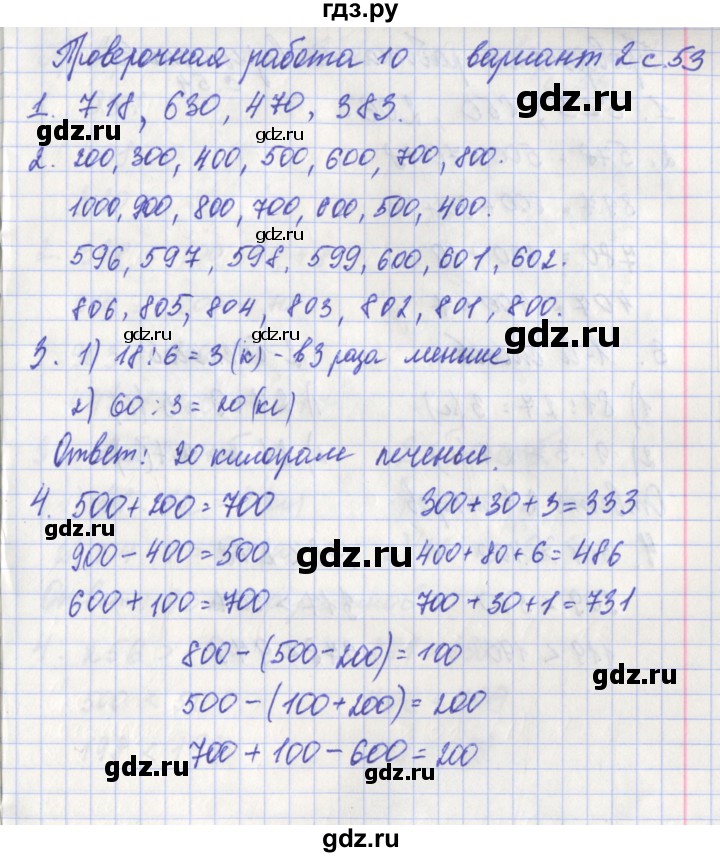 гдз.ру
Проверочная работа 10 вариант 2 с. 53
1. 718, 630, 470, 383.
gdz.ru
gdz.ru
gdz.ru
2. 200, 300, 400, 500, 600, 700, 800.
1000, 900, 800, 700, 600, 500, 400.
gdz.ru
596, 597, 598, 599, 600, 601, 602.
806, 805, 804, 803, 802, 801, 800.
gdz.ru
gdz.ru
gdz.ru
3. 1) 18 : 6 = 3 (к) - в 3 раза меньше
2) 60 : 3 = 20 (кг)
Ответ: 20 килограмм печенья.
4. 500 + 200 = 700 300 + 30 + 3 = 333
gdz.ru
gdz.ru
900 - 400 = 500 400 + 80 + 6 = 486
gdz.ru
600 + 100 = 700 700 + 30 + 1 = 731
800 - (500 - 200) = 100
gdz.ru
500 - (100 + 200) = 200
gdz.ru
700 + 100 - 600 = 200
gdz.ru
gdz.ru
gdz.ru